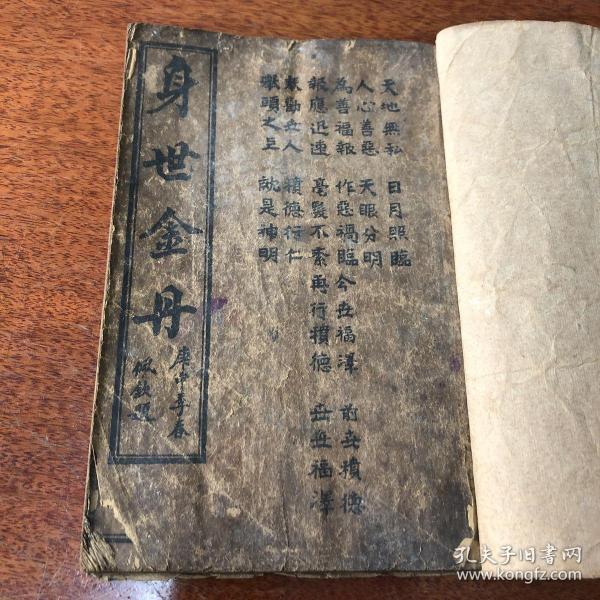 天地無私 日月照臨
人心善惡 天眼分明
為善福報 作惡禍臨今世福澤 前世積德
報應迅速 毫髮不紊再行積德 世世福澤
勸世人 積德行仁
頭之上 就是神明
身世金丹
庚申季春
題
孔夫子旧书网
www.kongfz.com